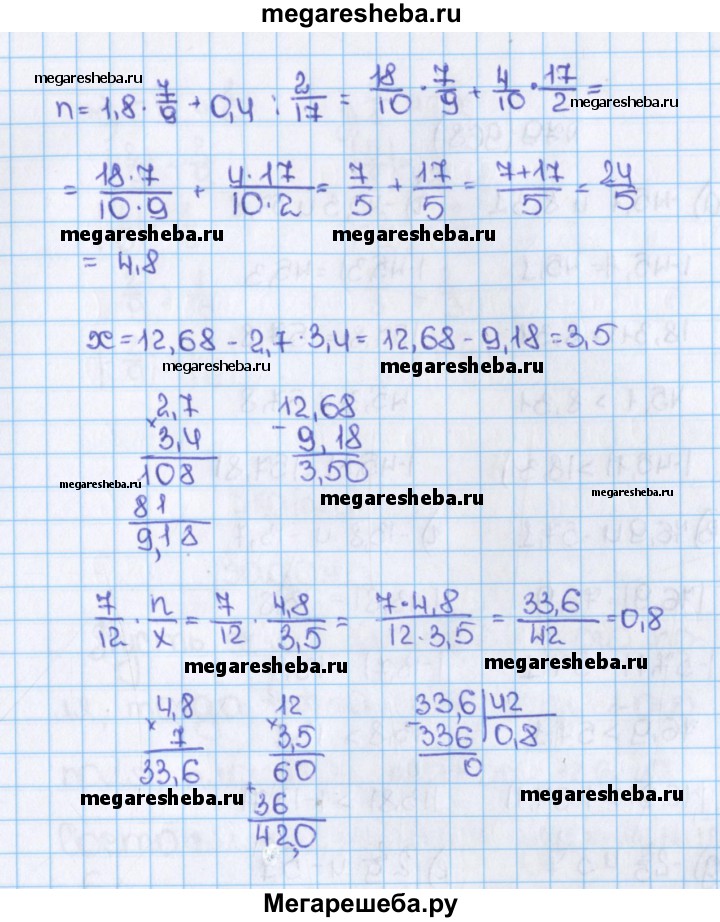 megaresheba.ru
megaresheba.ru
n = 1,8 · 7/9 + 0,4 : 2/17 = 18/10 · 7/9 + 4/10 · 17/2 =
megaresheba.ru
= 18·7/10·9 + 4·17/10·2 = 7/5 + 17/5 = 7+17/5 = 24/5
megaresheba.ru megaresheba.ru
= 4,8
x = 12,68 - 2,7 · 3,4 = 12,68 - 9,18 = 3,5
megaresheba.ru megaresheba.ru
2,7 12,68
× 3,4 - 9,18
108 3,50
megaresheba.ru megaresheba.ru megaresheba.ru
81
9,18
7/12 · n/x = 7/12 · 4,8/3,5 = 7·4,8/12·3,5 = 33,6/42 = 0,8
megaresheba.ru megaresheba.ru
4,8 12 33,6 42
× 7 × 3,5 - 336 0,8
33,6 60 0
megaresheba.ru megaresheba.ru
+ 36
42,0
Мегарешеба.ру